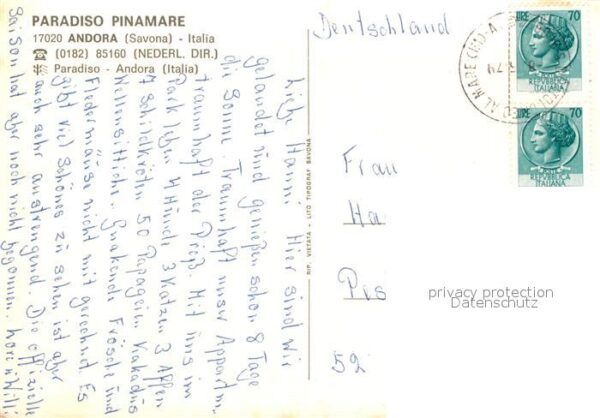 PARADISO PINAMARE
17020 ANDORA (Savona) - Italia
(0182) 85160 (NEDERL. DIR.)
Paradiso - Andora (Italia)
Deutschland
LIRE 70
REPVBBLICA
ITALIANA
LIRE 70
REPVBBLICA
ITALIANA
Liebe Hanni! Hier sind wir
gelandet und genießen schon 8 Tage
die Sonne. Traumhaft unser Appartm.
traumhaft der Preis. Mit uns im
Park leben 4 Hunde 3 Katzen 3 Affen
7 Schildkröten 50 Papageien Kakadus
Wellensittiche, Quakende Frösche und
Fledermäuse nicht mit gerechnet. Es
gibt viel Schönes zu sehen ist aber
auch sehr anstrengend. Die offizielle
Saison hat aber noch nicht begonnen.
RIP. VIETATA - LITO TIPOGRAF SAVONA
Frau
Ha
Pes
52
privacy protection
Datenschutz